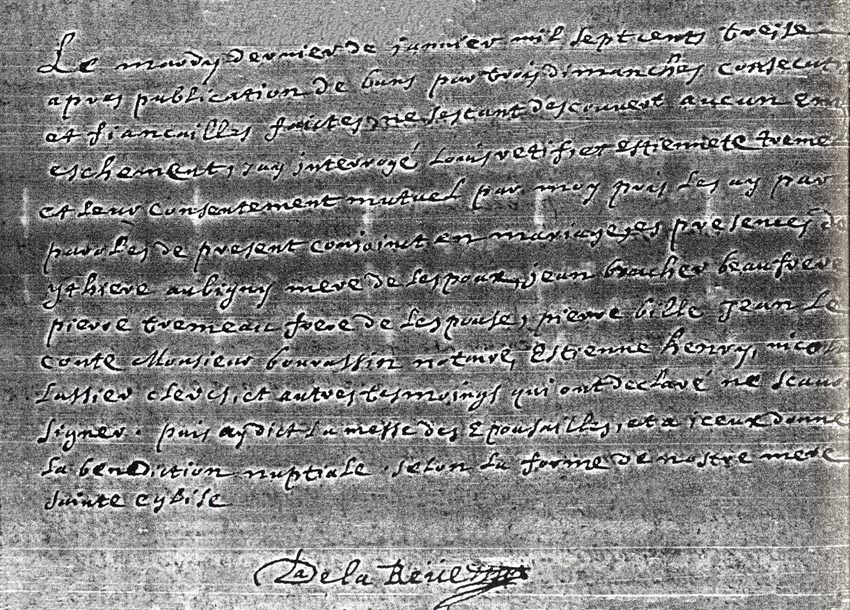 Le mardy dernier de janvier mil sept cents treise
apres publication de bans par trois dimanches consecuti
et fiancailles faictes, ne sestant descouvert aucun emp
eschement, j'ay interrogé Louis retif, et estiennete treme
et leur consentement mutuel par moy pris les ay par
paroles de present conjoinct en mariage, es presences de
ythiere aubigny mere de lespoux, jean boucher beaufrere
pierre tremeau frere de lespouse, pierre bille Jean Le
conte Monsieur bourassin notaire, Estienne henry, nico
Lassier clercs, et autres tesmoings qui ont declaré ne scavo
signer. puis ay dict la messe des Epousailles, et a iceux donné
la benediction nuptiale. selon la forme de nostre mere
sainte eglise
De la Reue